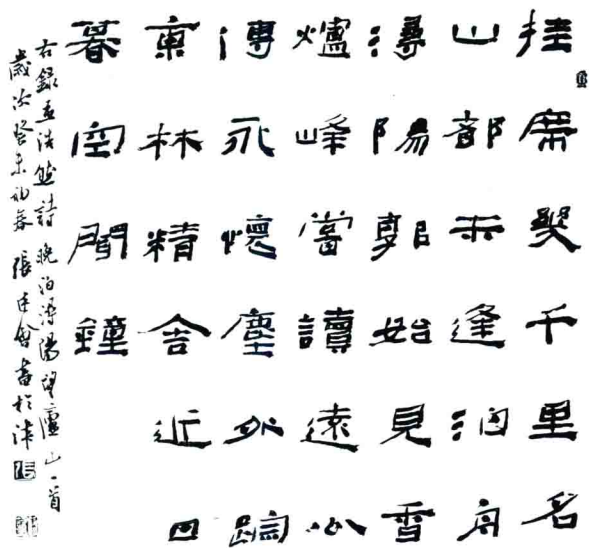 挂席幾千里名
山都未逢泊舟
潯陽郭始見香
爐峰嘗讀遠公
傳永懷塵外踪
東林精舍近日
暮空聞鐘
右錄孟浩然詩晚泊潯陽望廬山一首
歲次癸未初春張建會書於津